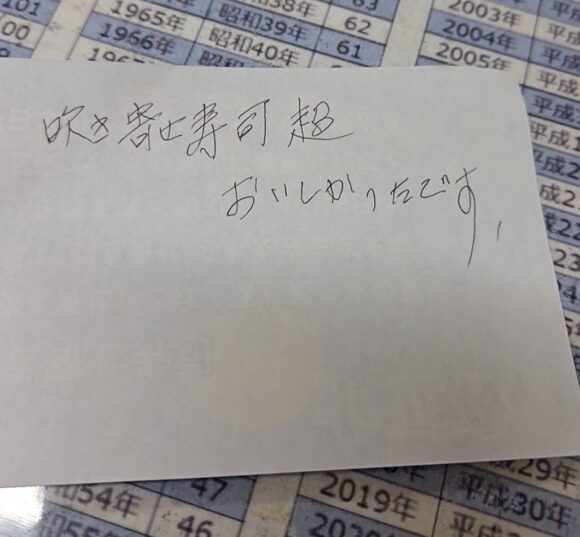 101
1965年 昭和39年 62
1966年 昭和40年 61
2003年
2004年 平成
2005年 平成
吹き寄せ寿司 超
おいしかったです、
47
54年 46
2019年 平成30年
平成29年